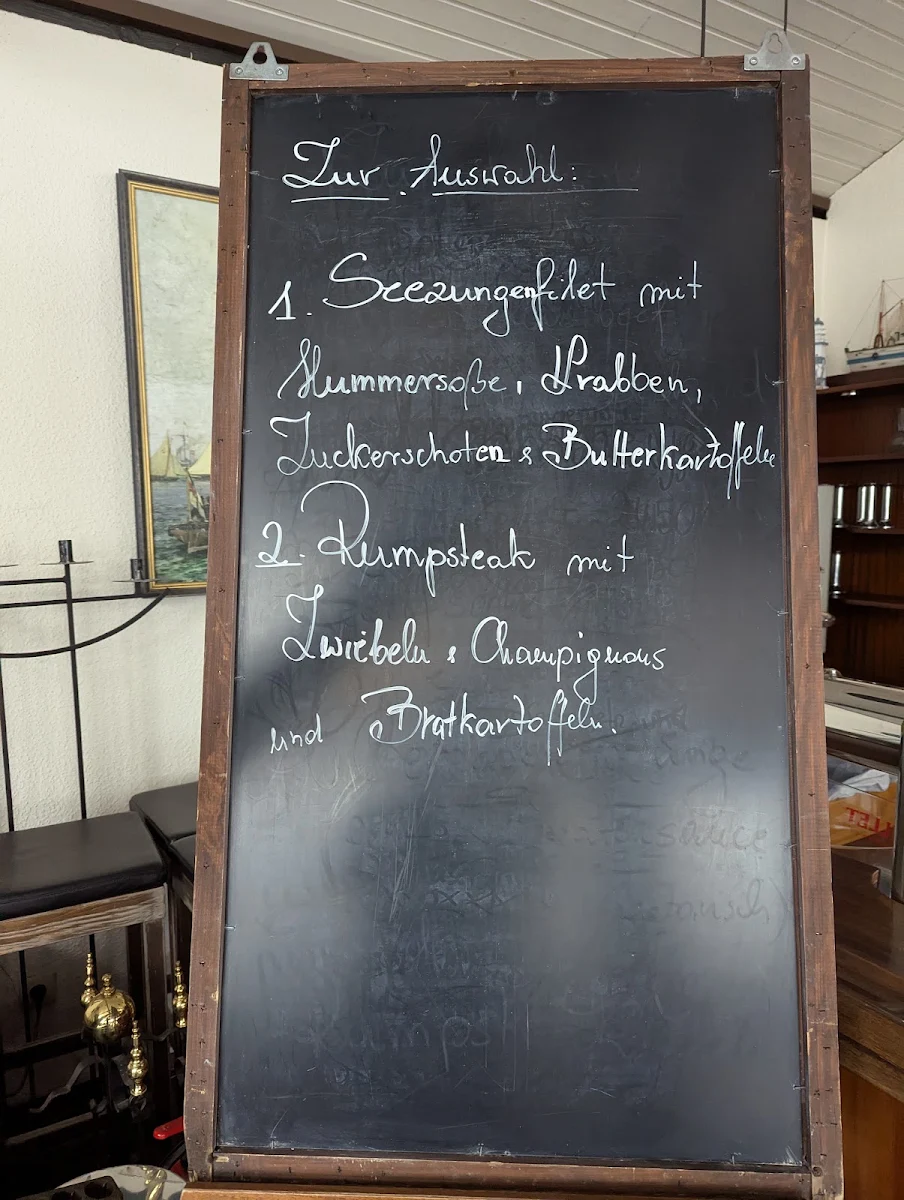 Zur Auswahl:
1. Seezungenfilet mit
Hummersoße, Krabben,
Zuckerschoten & Butterkartoffeln
2. Rumpsteak mit
Zwiebeln & Champignons
und Bratkartoffeln.